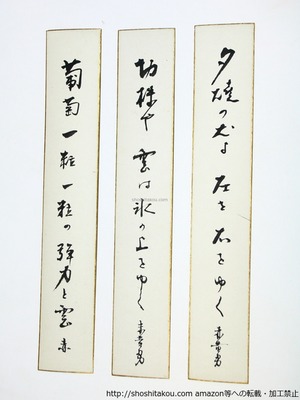 夕焼の犬よ 左を 右をゆく 赤黄男
切株や 雲は氷の上をゆく 赤黄男
葡萄一粒一粒の弾力と雲 赤
http://shoshitakou.com amazon等への転載・加工禁止